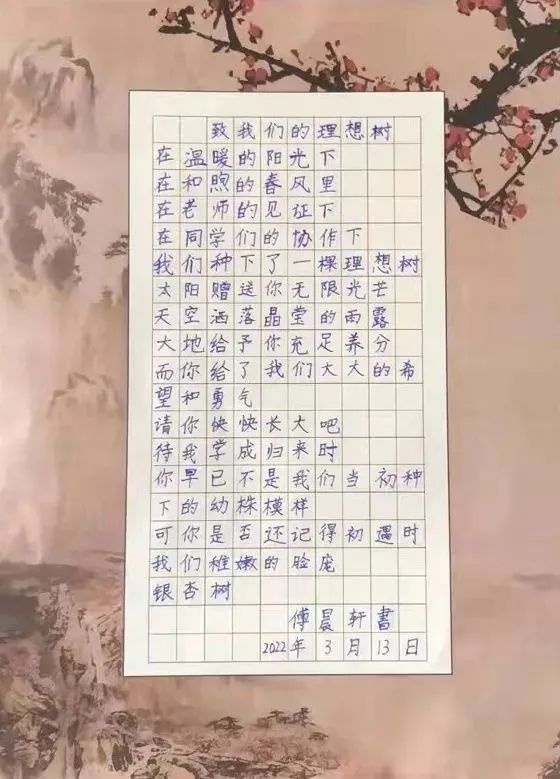 致我们的理想树
在温暖的阳光下
在和煦的春风里
在老师的见证下
在同学们的协作下
我们种下了一棵理想树
太阳赠送你无限光芒
天空洒落晶莹的雨露
大地给予你充足养分
而你给了我们大大的希
望和勇气
请你快快长大吧
待我学成归来时
你早已不是我们当初种
下的幼株模样
可你是否还记得初遇时
我们稚嫩的脸庞
银杏树
傅晨轩書
2022年3月13日